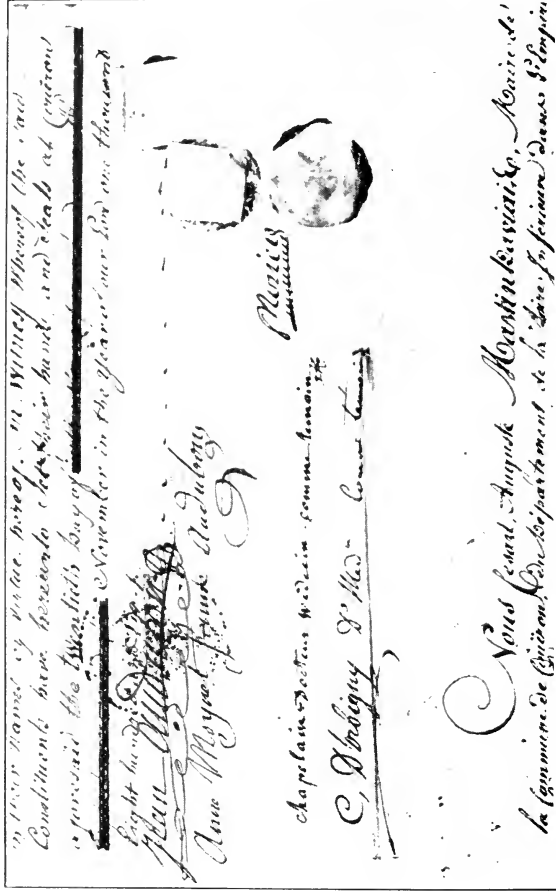 in their names by virtue hereof. In Witness Whereof the said
Constituents have hereunto set their hands and seals at Couëron
aforesaid the twentieth day of
November in the year of our Lord one thousand
Eight hundred
Jean Audubon
Anne Moynet femme Audubon
chapelain docteur médecin comme temoin
C, D'orbigny D. Med. comme temoin
Nous Cesard, Auguste Martin Maire de
la Commune de Couëron, Département de la Loire Inférieure dans l'Empire